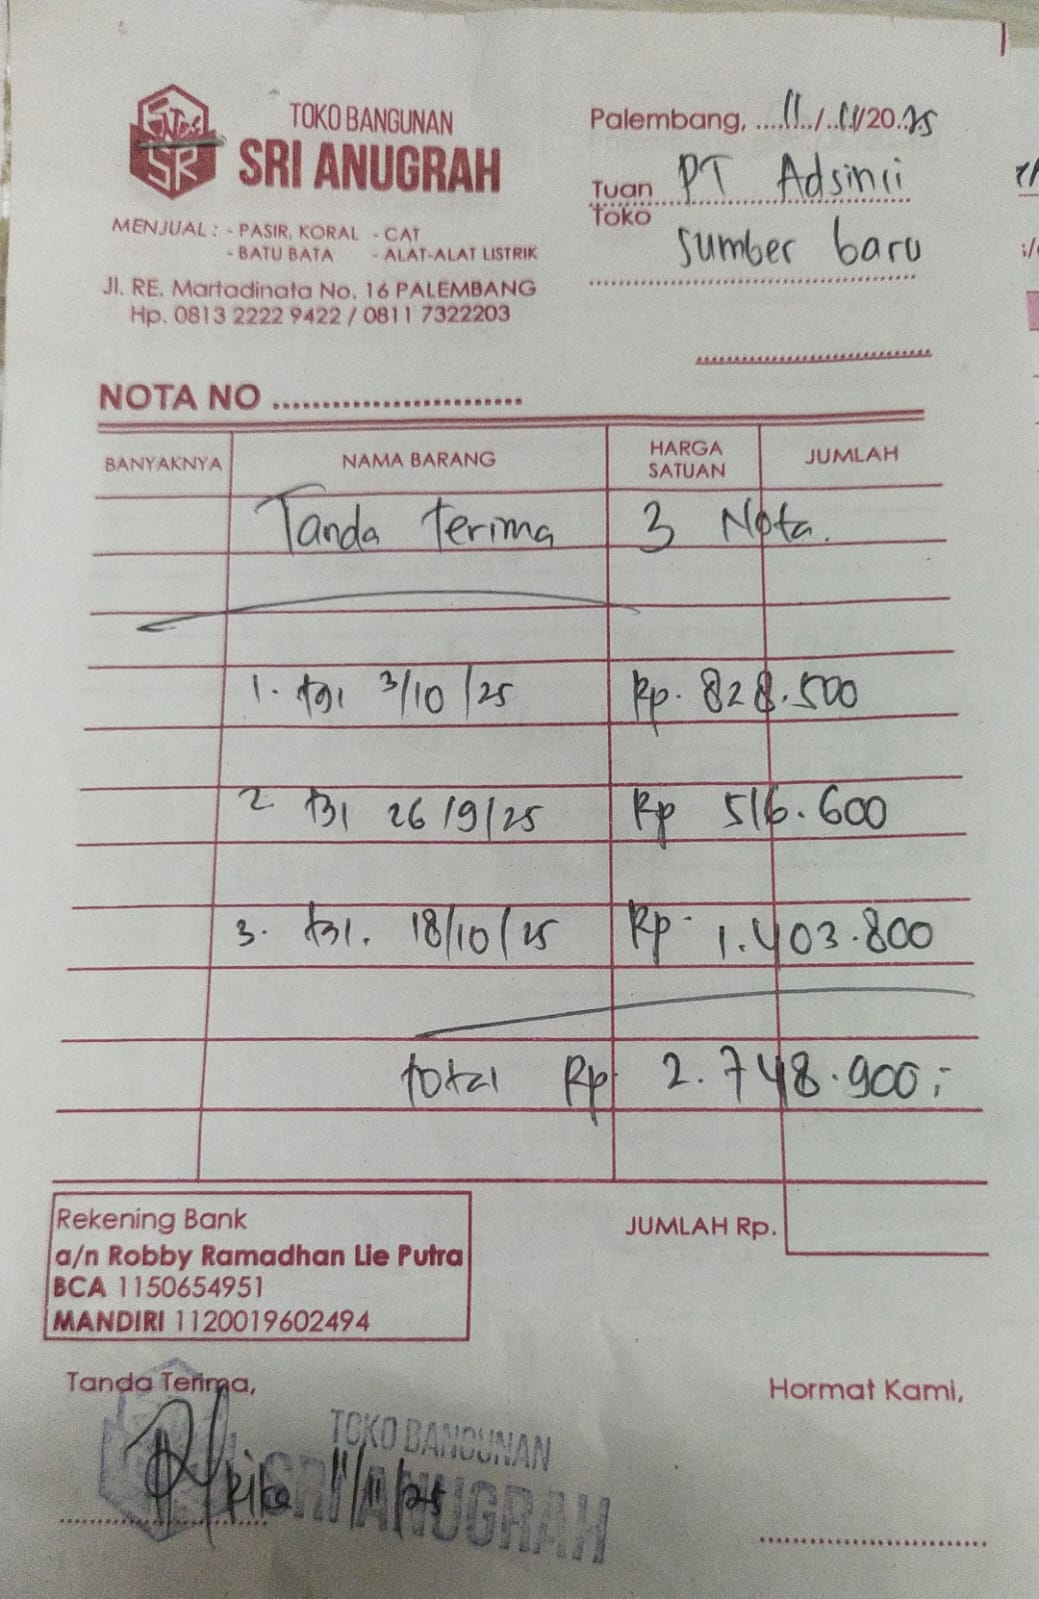 TOKO BANGUNAN
SRI ANUGRAH
SR
MENJUAL : - PASIR, KORAL - CAT
- BATU BATA - ALAT-ALAT LISTRIK
Jl. RE. Martadinata No. 16 PALEMBANG
Hp. 0813 2222 9422 / 0811 7322203
Palembang, 11/11/2025
Tuan PT Adsinii
Toko Sumber baru
NOTA NO
BANYAKNYA NAMA BARANG HARGA SATUAN JUMLAH
Tanda Terima 3 Nota.
1. tgl 3/10/25 Rp. 828.500
2 tgl 26/9/25 Rp 516.600
3. tgl. 18/10/25 Rp. 1.403.800
total Rp 2.748.900,-
Rekening Bank
a/n Robby Ramadhan Lie Putra
BCA 1150654951
MANDIRI 1120019602494
JUMLAH Rp.
Tanda Terima,
Hormat Kami,
TOKO BANGUNAN
SRI ANUGRAH
11/11/25